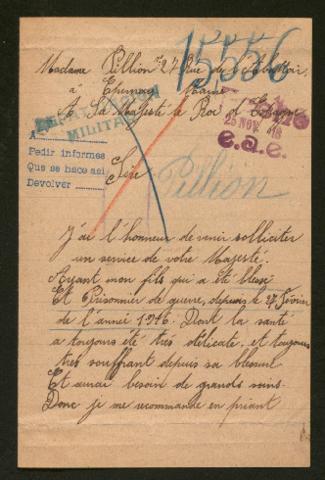 15556
Madame Pillion 27 Rue de l'Abattoir
à Epernay Marne
A Sa Majesté le Roi d'Espagne
MILITAR
25 NOV. 1916
e.a.e.
A
Pedir informes
Que se hace así
Devolver
Sire
Pillion
J'ai l'honneur de venir solliciter
un service de votre Majesté.
Ayant mon fils qui a été blessé
Et Prisonnier de guerre, depuis le 27 Février
de l'année 1916. Dont la santé
a toujours été très délicate, et toujours
très souffrant depuis sa blessure
Et aurait besoin de grands soins.
Donc je me recommande en priant